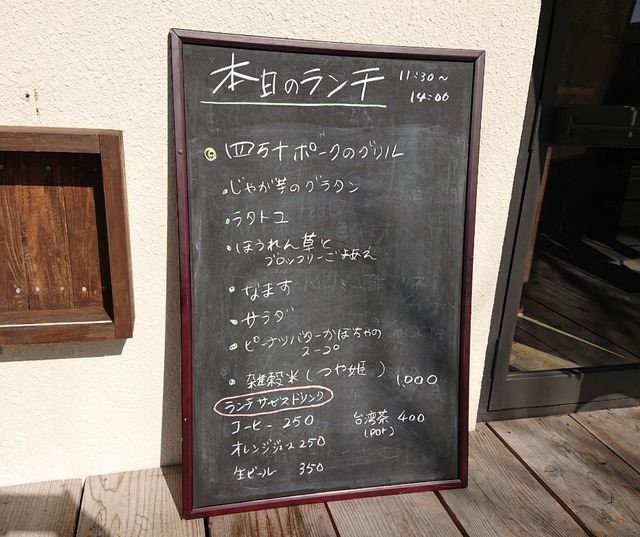 本日のランチ 11:30〜
14:00
◎四万十ポークのグリル
・じゃが芋のグラタン
・ラタトユ
・ほうれん草と
ブロッコリーごまあえ
・なます
・サラダ
・ピーナツバターかぼちゃの
スープ
・雑穀米(つや姫) 1,000
ランチサービスドリンク
コーヒー 250
台湾茶 400
(pot)
オレンジジュース 250
生ビール 350